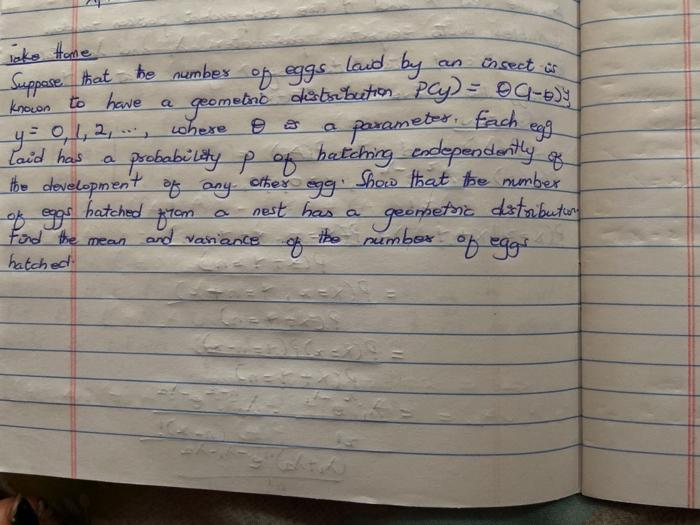 Take Home
Suppose that the number of eggs laid by an insect is
known to have a geometric distribution P(y) = θ(1-θ)^y,
y = 0, 1, 2, ..., where θ is a parameter. Each egg
laid has a probability p of hatching independently of
the development of any other egg. Show that the number
of eggs hatched from a nest has a geometric distribution.
Find the mean and variance of the number of eggs
hatched.